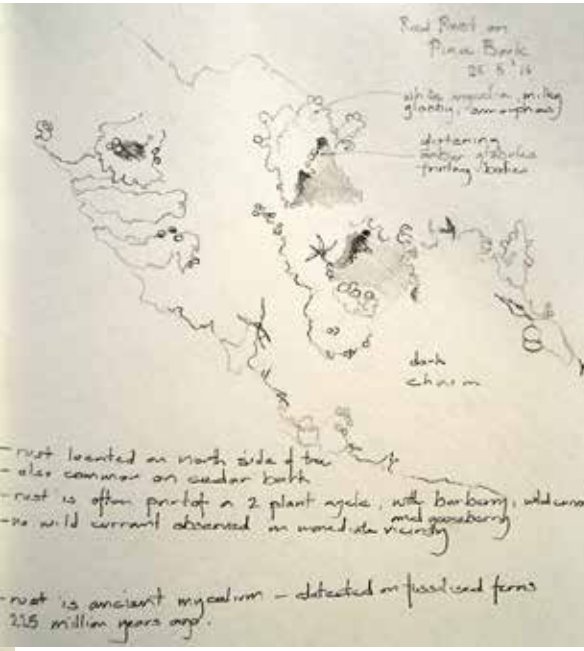 Red Rust on
Pine Bark
25 5 '15
white mycelia, milky
glassy, amorphous
glistening
amber globules
fruiting bodies
dark
chasm
- rust located on north side of tree
- also common on cedar bark
- rust is often part of a 2 plant cycle, with barberry, wild
and gooseberry
- no wild currant observed in immediate vicinity
- rust is ancient mycelium - detected on fossilised ferns
million years ago.